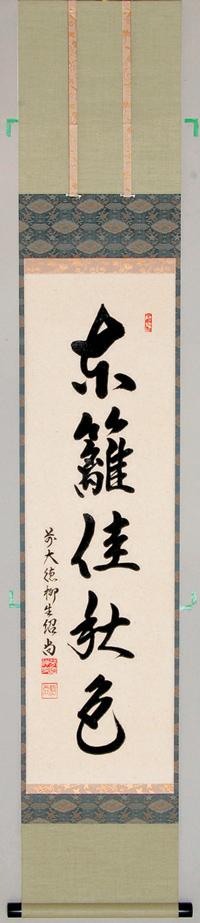 東籬佳秋色
前大徳柳生紹尚